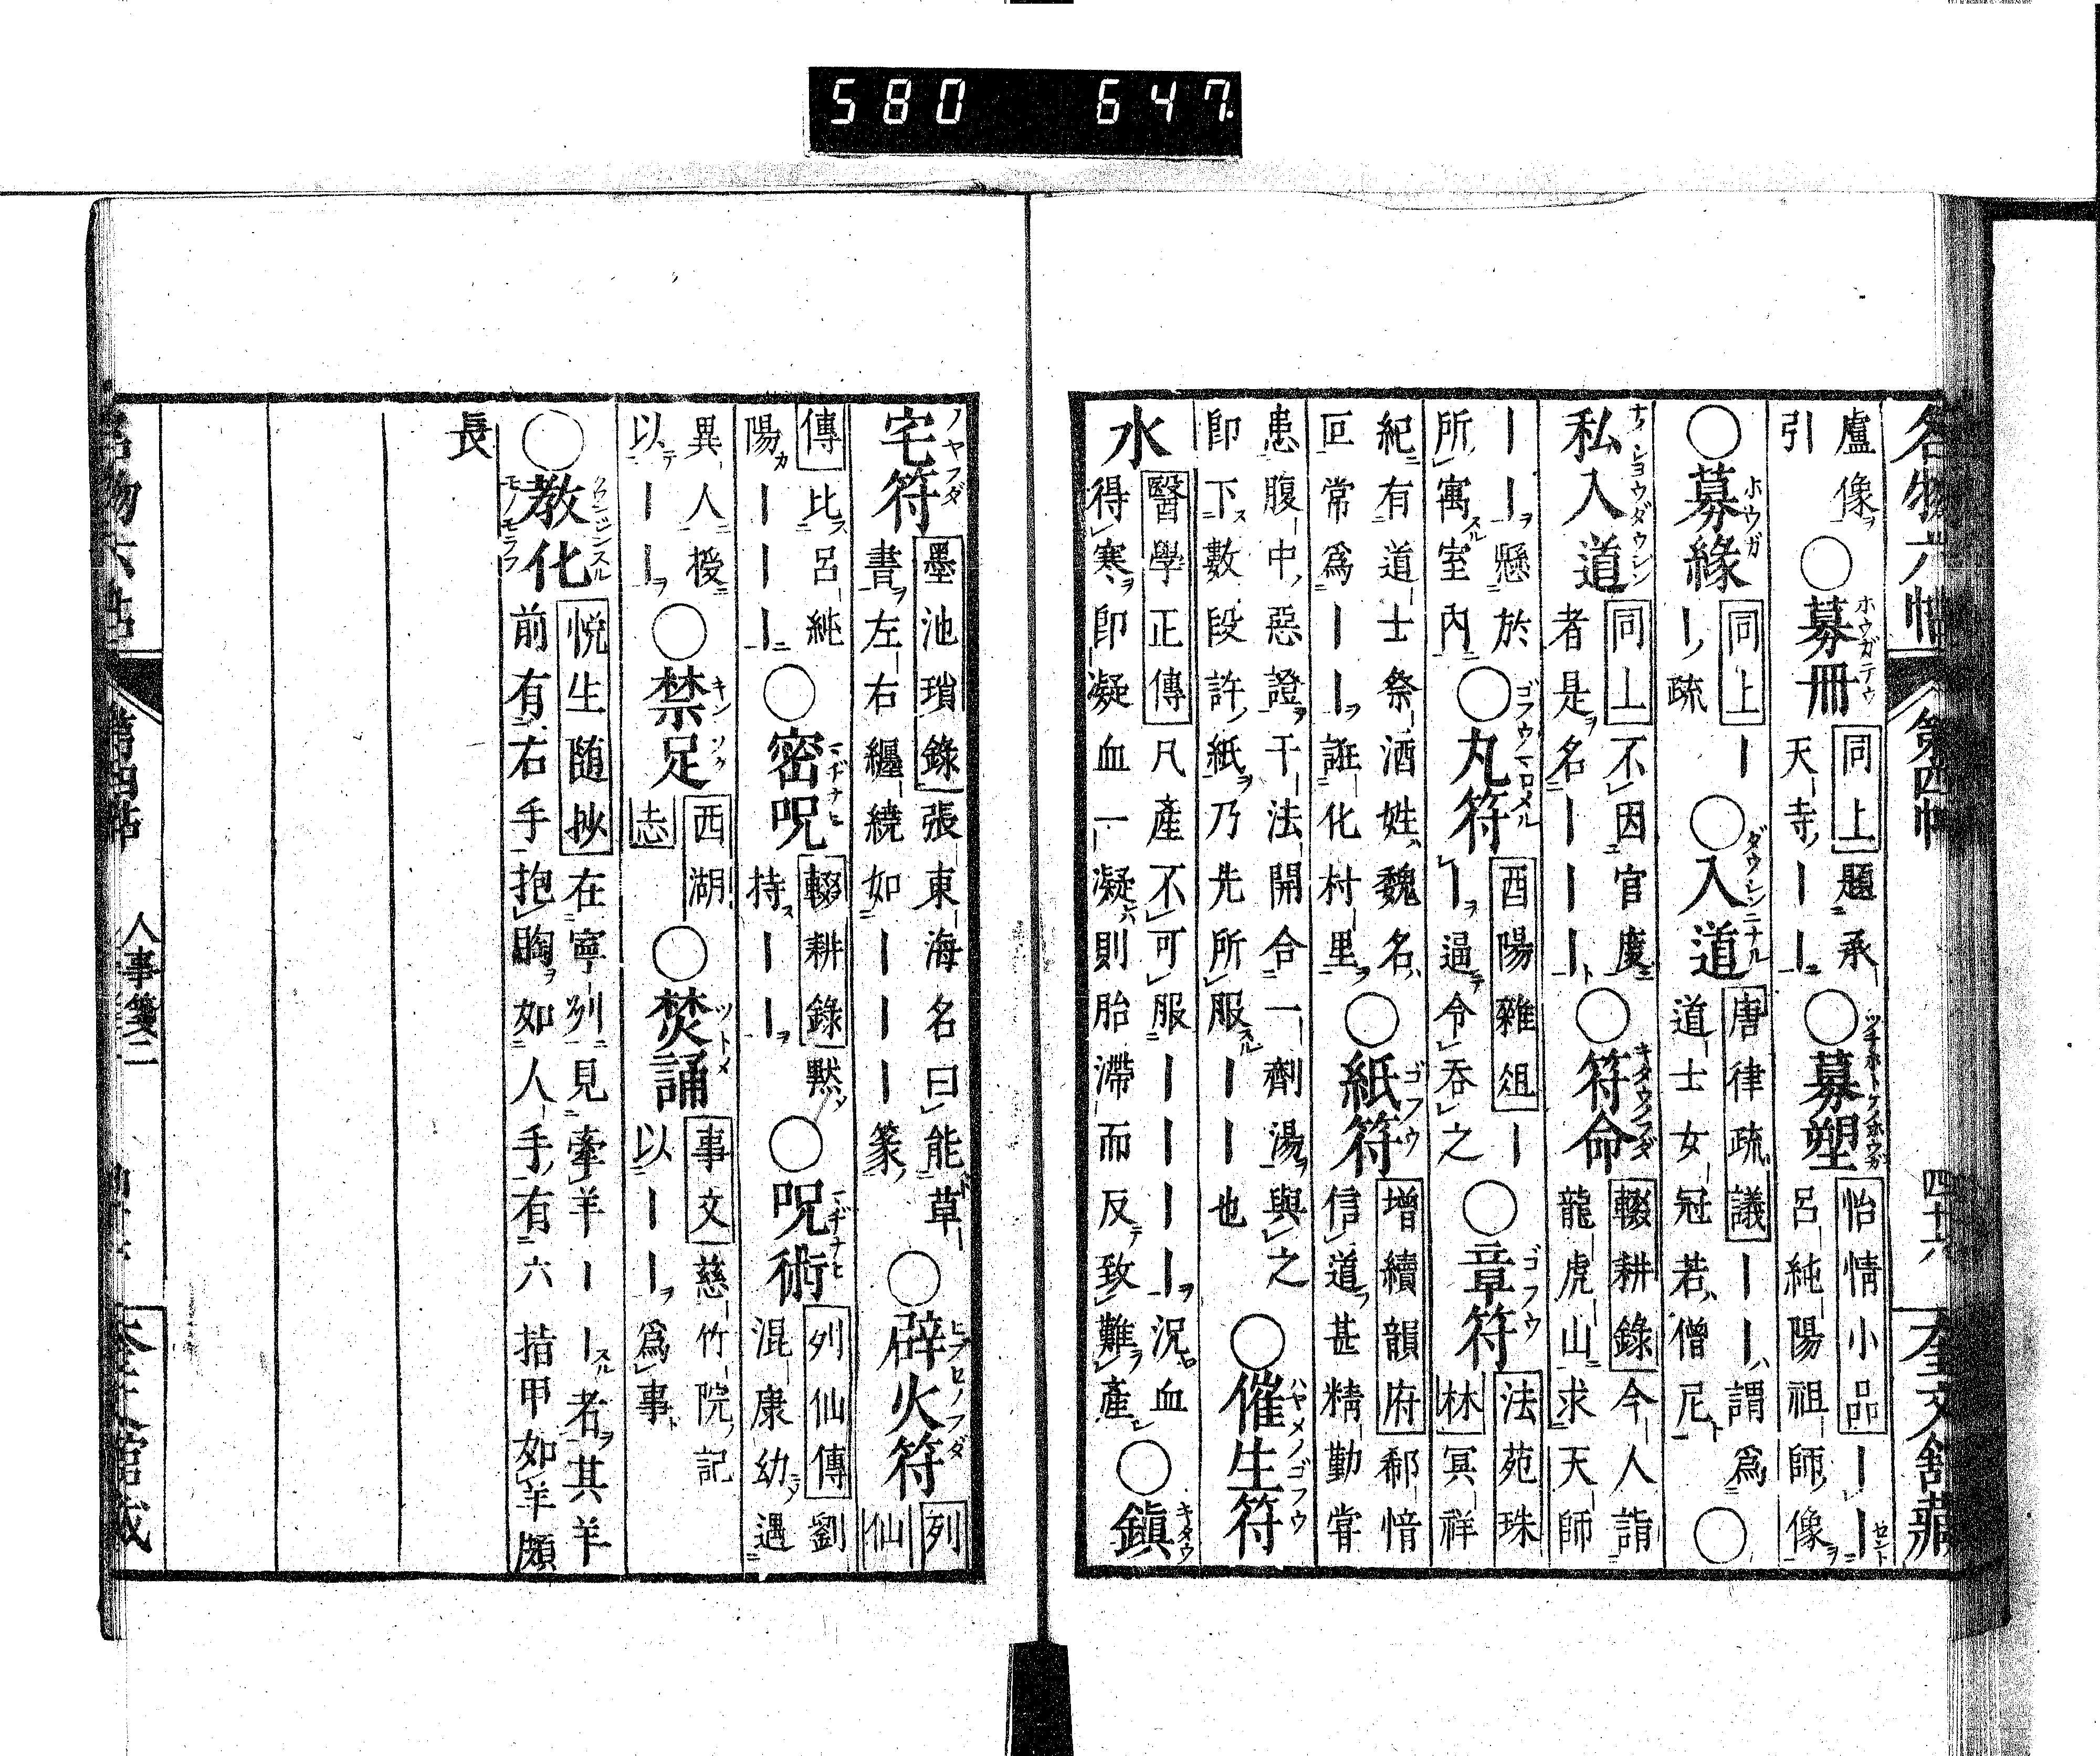 580 647
名物六帖 第四帖 四十六 奎文舘藏
盧像引○募冊同上題承天寺｜｜○募塑怡情小品｜｜呂純陽祖師像
○募緣同上｜｜疏○入道唐律疏議｜｜謂爲道士女冠若僧尼○
私入道同上不因官度者是名｜｜｜○符命輟耕錄今人詣龍虎山求天師
｜｜懸於所寓室內○丸符酉陽雜俎｜｜逼令吞之○章符法苑珠林冥祥
紀有道士祭酒姓魏名叵常爲｜｜誑化村里○紙符增續韻府郗愔信道甚精勤嘗
患腹中惡證干法開合一劑湯與之卽下數段許紙乃先所服｜｜也○催生符
水醫學正傳凡產不可服｜｜｜況血得寒卽凝血一凝則胎滯而反致難產○鎭
宅符墨池瑣錄張東海名曰能草書左右纏繞如｜｜｜篆○辟火符列仙
傳比呂純陽｜｜｜○密呪輟耕錄默持｜｜○呪術列仙傳劉混康幼遇
異人授以｜｜○禁足西湖志○焚誦事文慈竹院記以｜｜爲事
○教化悦生随抄在寧列見牽羊｜｜者其羊前有右手抱胸如人手有六指甲如羊頗
長
名物六帖 第四帖 人事箋二